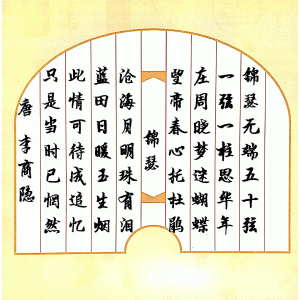 锦瑟无端五十弦
一弦一柱思华年
庄周晓梦迷蝴蝶
望帝春心托杜鹃
锦瑟
沧海月明珠有泪
蓝田日暖玉生烟
此情可待成追忆
只是当时已惘然
唐 李商隐